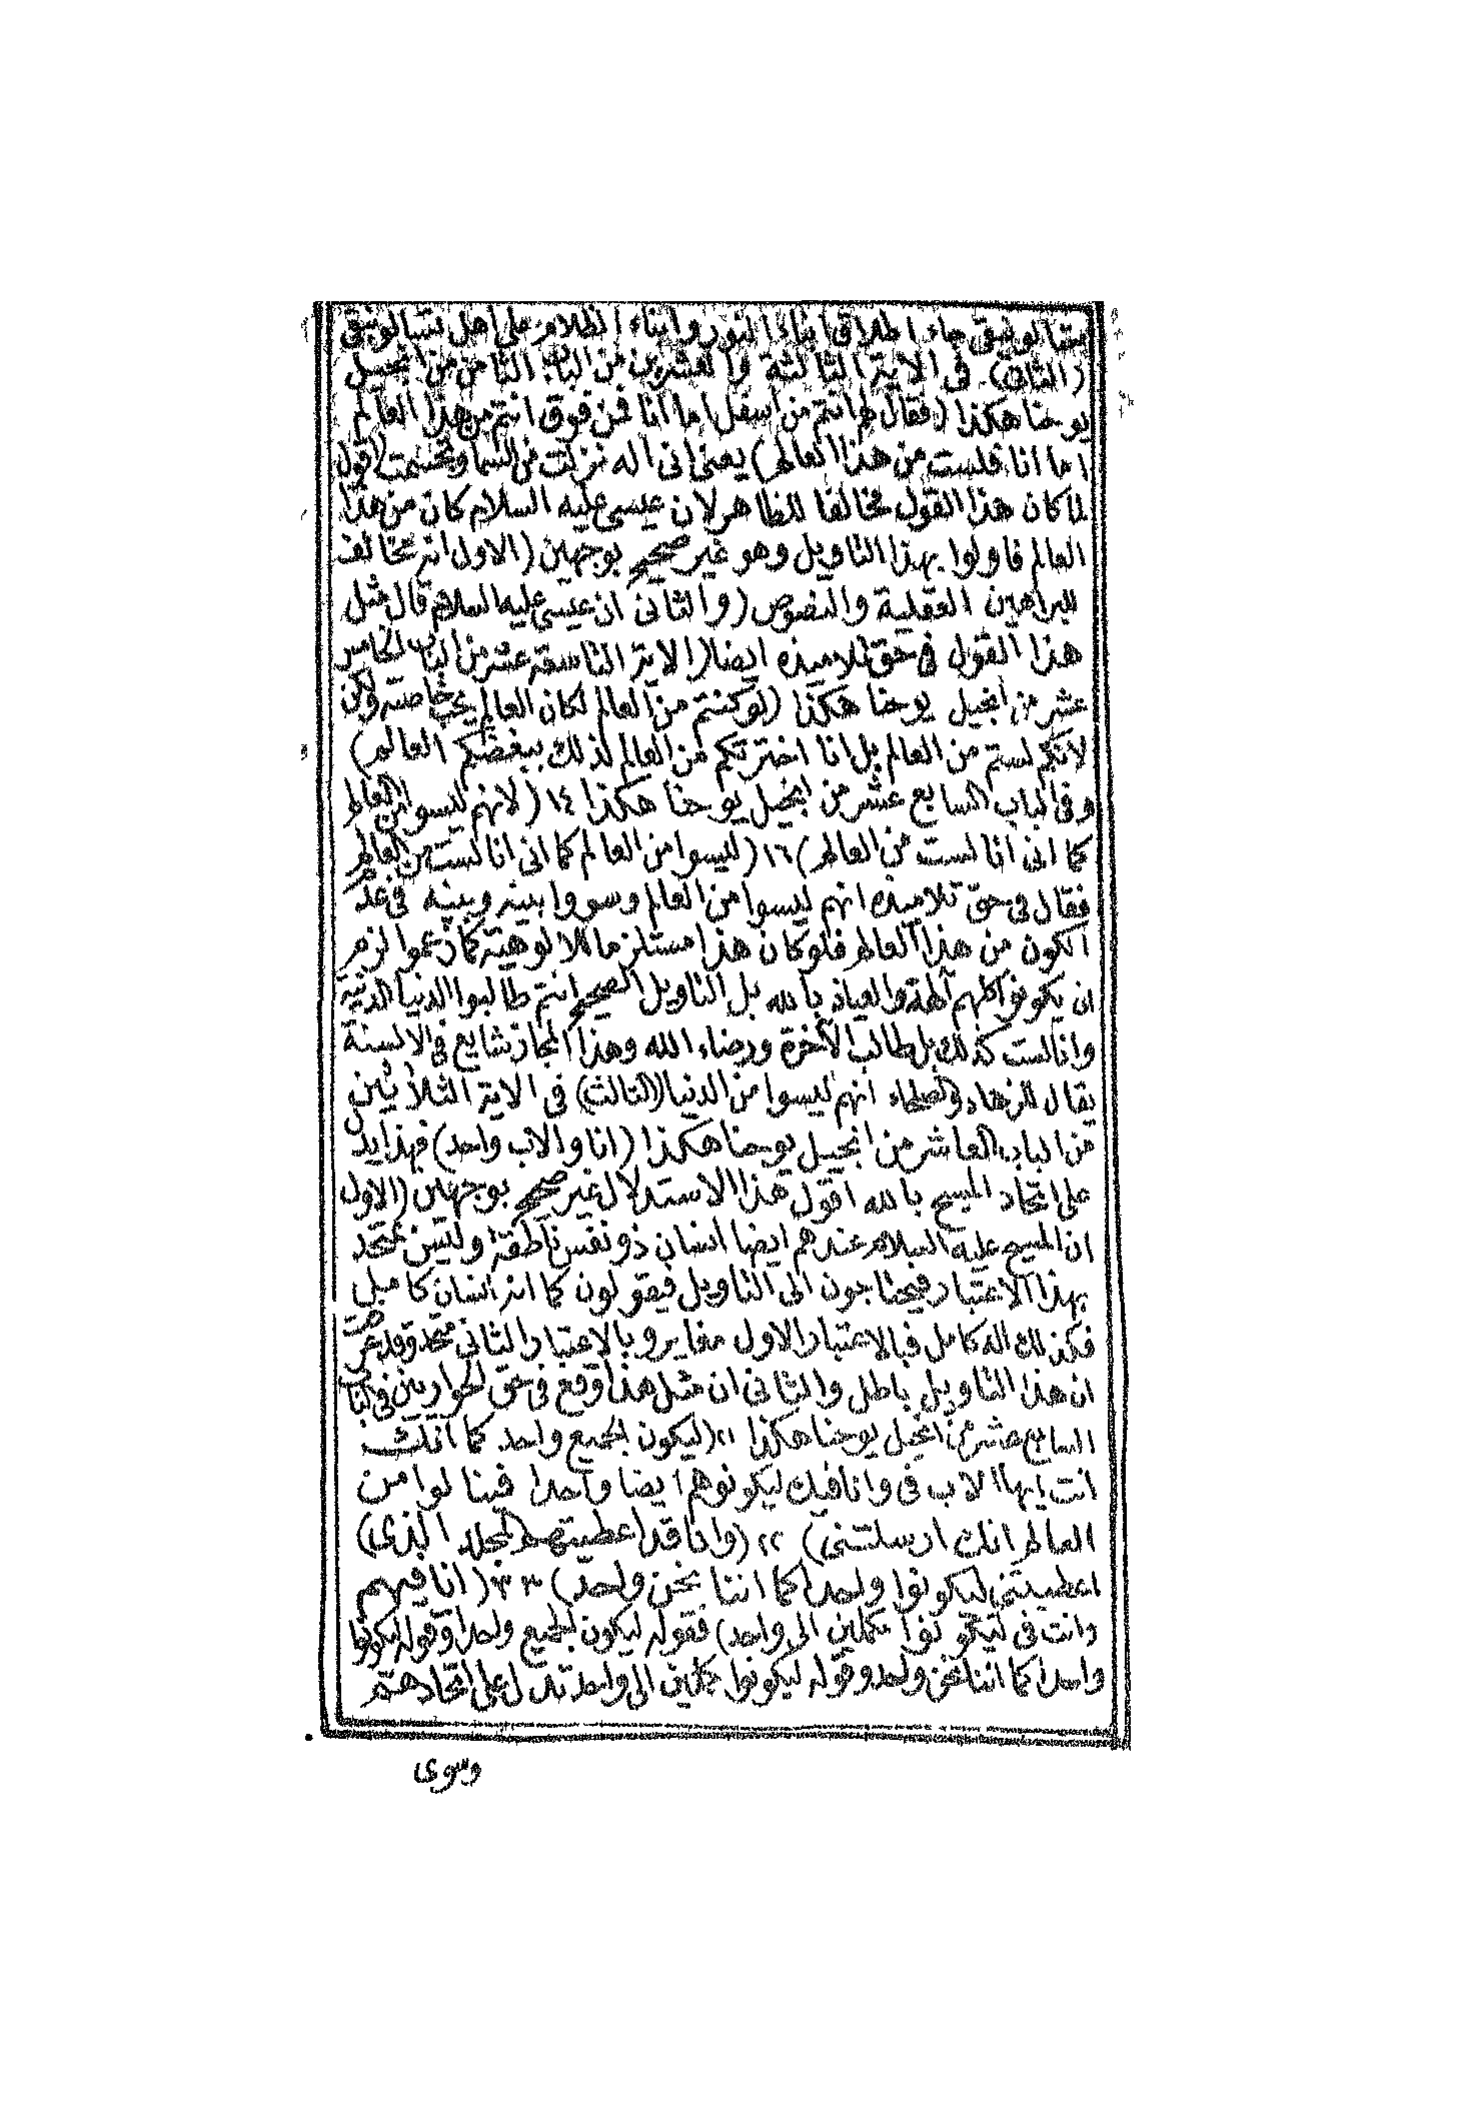 بتسالونيقى جاء اطلاق ابناء النور وابناء الظلام على اهل تسالونيقى
(الثانى) فى الاية الثالثة والعشرين من الباب الثامن من انجيل
يوحنا هكذا (فقال لهم انتم من اسفل اما انا فمن فوق انتم من هذا العالم
اما انا فلست من هذا العالم) يعنى انى اله نزلت من السما وتجسمت اقول
لما كان هذا القول مخالفا للظاهر لان عيسى عليه السلام كان من هذا
العالم فاولوا بهذا التاويل وهو غير صحيح بوجهين (الاول انه مخالف
للبراهين العقلية والنصوص (والثانى ان عيسى عليه السلام قال مثل
هذا القول فى حق تلاميذه ايضا (الاية التاسعة عشر من الباب الخامس
عشر من انجيل يوحنا هكذا (لو كنتم من العالم لكان العالم يحب خاصته ولكن
لانكم لستم من العالم بل انا اخترتكم من العالم لذلك يبغضكم العالم)
وفى الباب السابع عشر من انجيل يوحنا هكذا ١٤ (لانهم ليسوا من العالم
كما انى انا لست من العالم) ١٦ (ليسوا من العالم كما انى انا لست من العالم
فقال فى حق تلاميذه انهم ليسوا من العالم وسووا بينه وبينه فى عدم
الكون من هذا العالم فلو كان هذا مستلزما للالوهية كما زعموا لزم
ان يكونوا كلهم آلهة والعياذ بالله بل التاويل الصحيح انتم طالبوا الدنيا الدنية
وانا لست كذلك بل طالب الآخرة ورضاء الله وهذا المجاز شايع فى الالسنة
يقال للزهاد والصلحاء انهم ليسوا من الدنيا (الثالث) فى الاية الثلاثين
من الباب العاشر من انجيل يوحنا هكذا (انا والاب واحد) فهذا يدل
على اتحاد المسيح بالله اقول هذا الاستدلال غير صحيح بوجهين (الاول
ان المسيح عليه السلام عندهم ايضا انسان ذو نفس ناطقة وليس بمتحد
بهذا الاعتبار فيحتاجون الى التاويل فيقولون كما انه انسان كامل
فكذلك اله كامل فبالاعتبار الاول مغاير وبالاعتبار الثانى متحد وقد عرفت
ان هذا التاويل باطل والثانى ان مثل هذا وقع فى حق الحواريين فى الباب
السابع عشر من انجيل يوحنا هكذا ٢١ (ليكون الجميع واحد كما انك
انت ايها الاب فى وانا فيك ليكونوا هم ايضا واحدا فينا لوا من
العالم انك ارسلتنى) ٢٢ (وانا قد اعطيتهم المجد الذى)
اعطيتنى ليكونوا واحدا كما اننا نحن واحد) ٢٣ (انا فيهم
وانت فى ليكونوا مكملين الى واحد) فقوله ليكون الجميع واحدا وقوله ليكونوا
واحدا كما اننا نحن واحد وقوله ليكونوا مكملين الى واحد تدل على اتحادهم
وسوى